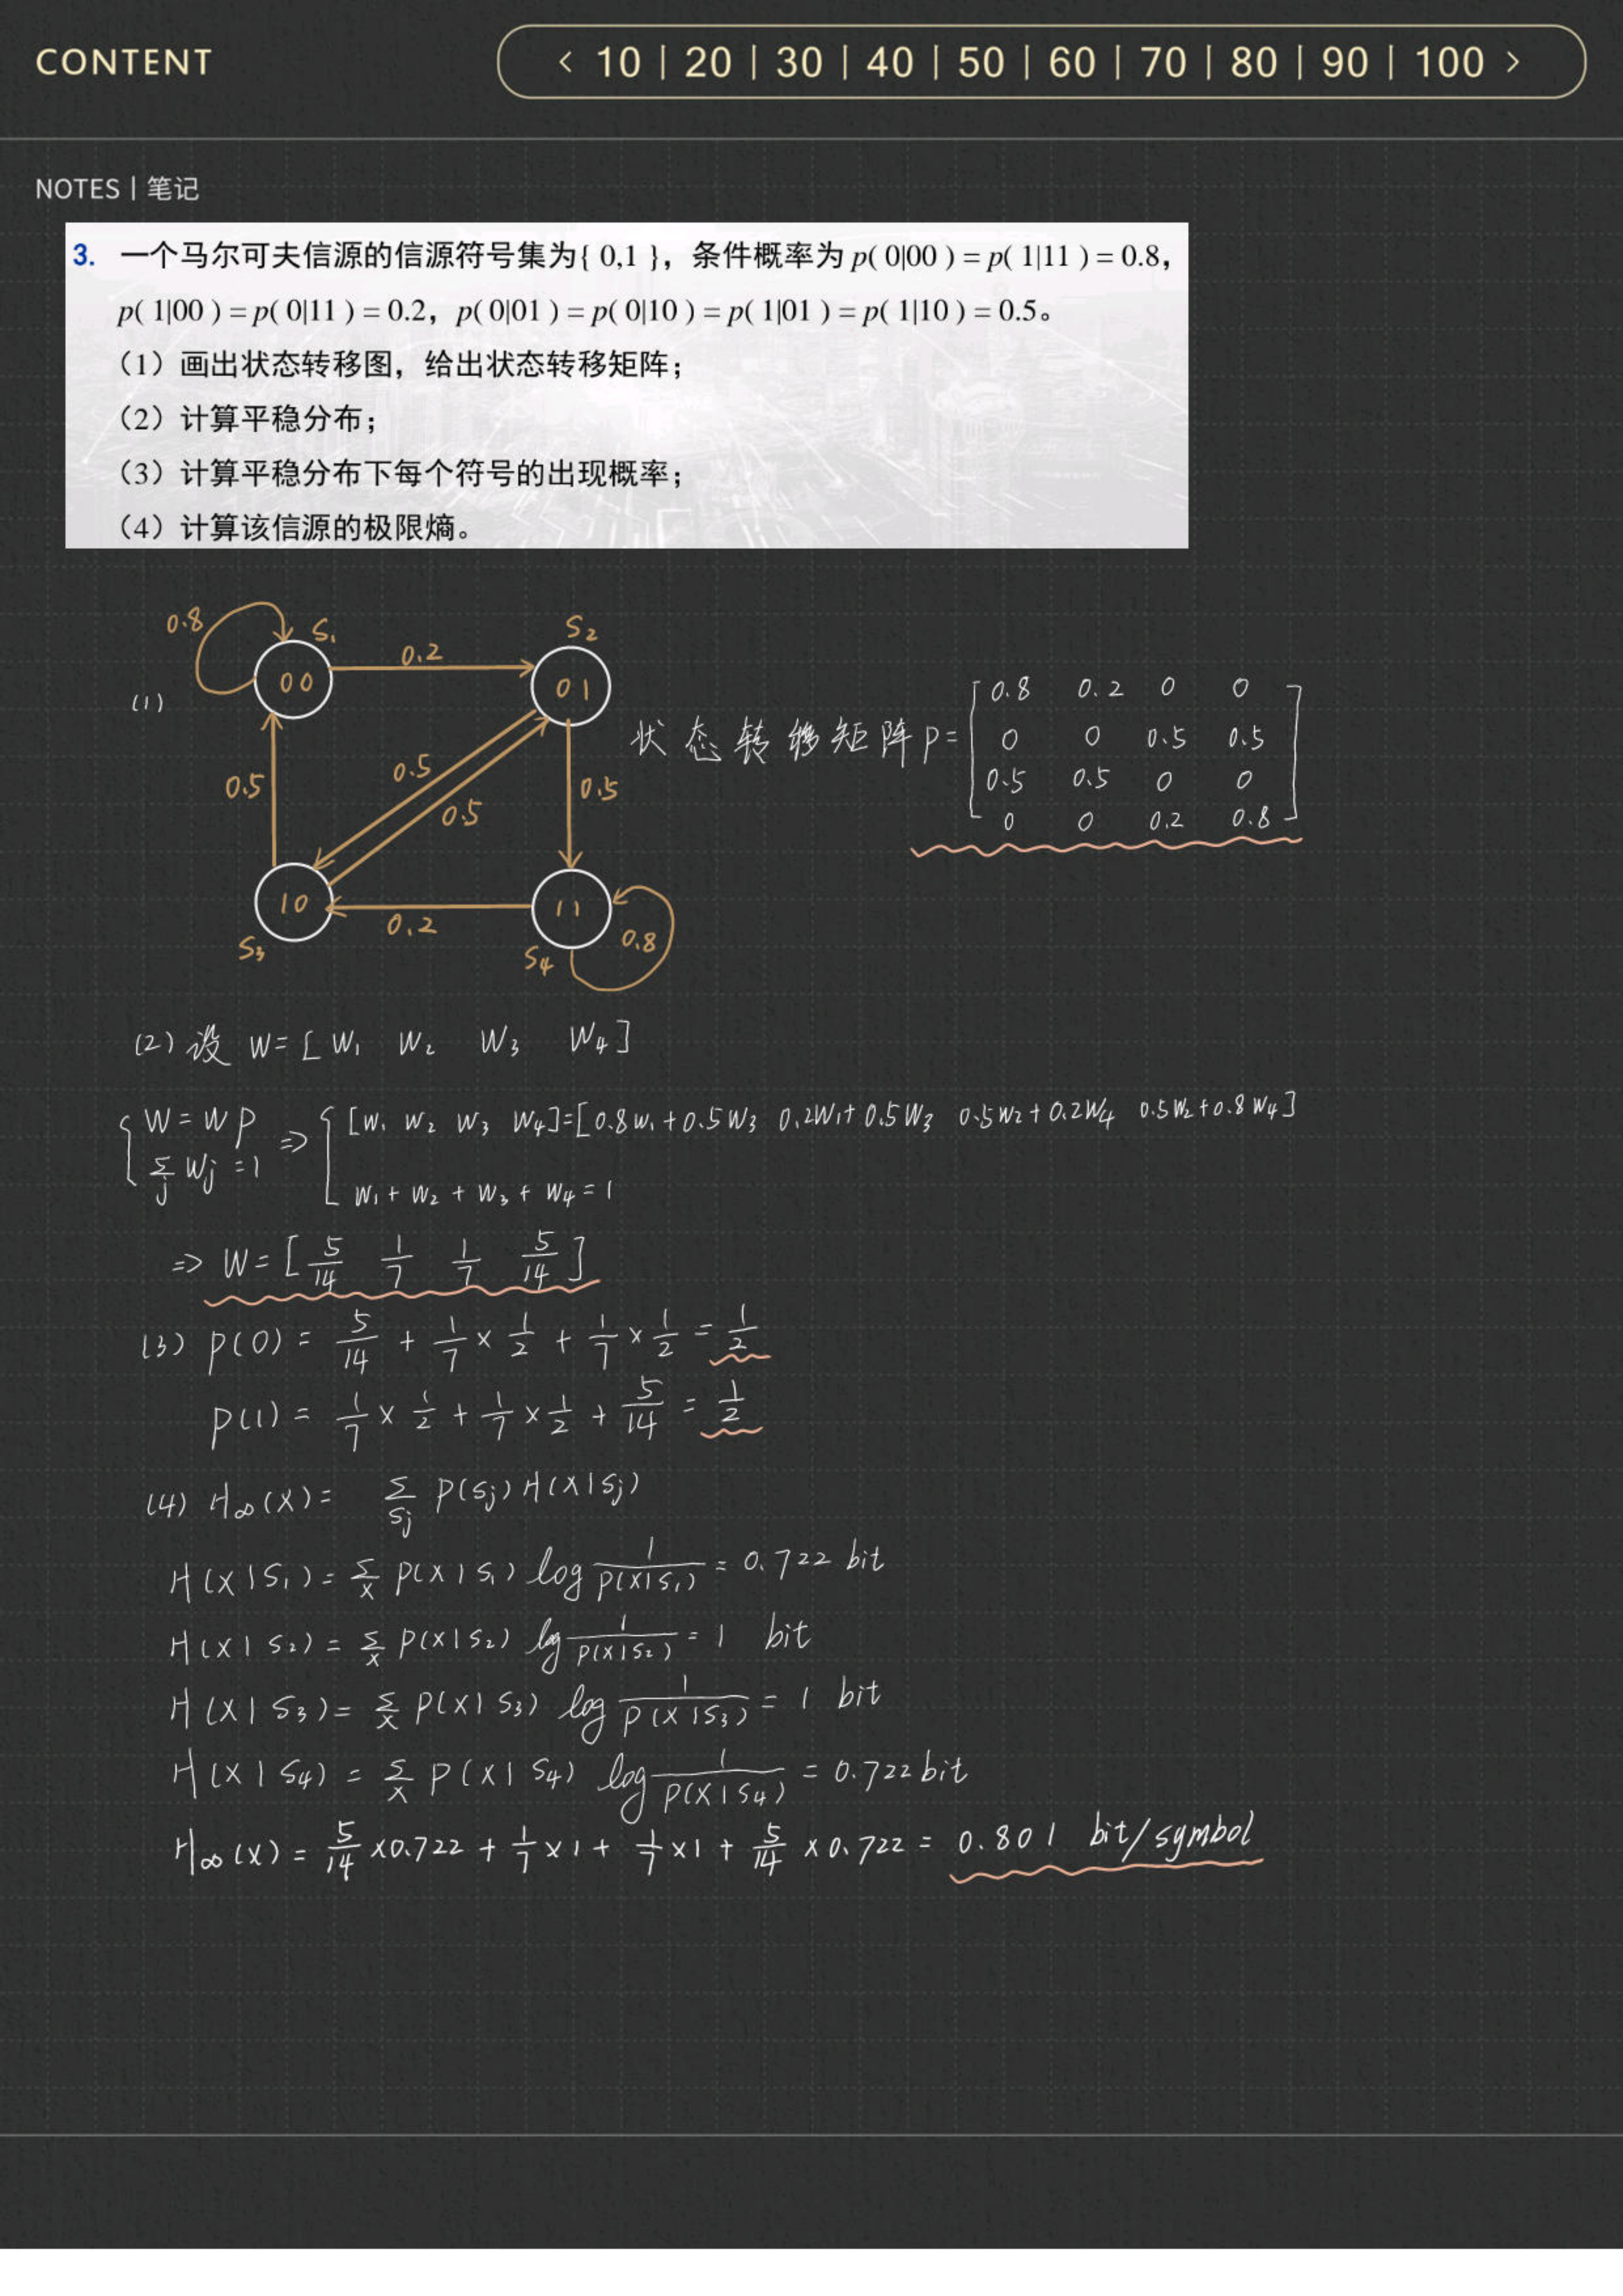 CONTENT
< 10 | 20 | 30 | 40 | 50 | 60 | 70 | 80 | 90 | 100 >
NOTES | 笔记
3. 一个马尔可夫信源的信源符号集为{ 0,1 }，条件概率为 p( 0|00 ) = p( 1|11 ) = 0.8，
p( 1|00 ) = p( 0|11 ) = 0.2，p( 0|01 ) = p( 0|10 ) = p( 1|01 ) = p( 1|10 ) = 0.5。
（1）画出状态转移图，给出状态转移矩阵；
（2）计算平稳分布；
（3）计算平稳分布下每个符号的出现概率；
（4）计算该信源的极限熵。
0.8 S₁ S₂
0.2
00 01
(1)
0.5 0.5 0.5 0.5
10 11
0.2 0.8
S₃ S₄
状态转移矩阵P=
[ 0.8 0.2 0 0
0 0 0.5 0.5
0.5 0.5 0 0
0 0 0.2 0.8 ]
(2) 设 W= [ W₁ W₂ W₃ W₄ ]
{ W = WP ⇒ { [W₁ W₂ W₃ W₄]=[0.8W₁+0.5W₃ 0.2W₁+0.5W₃ 0.5W₂+0.2W₄ 0.5W₂+0.8W₄]
Σⱼ Wⱼ =1 W₁ + W₂ + W₃ + W₄ = 1
⇒ W= [ 5/14 1/7 1/7 5/14 ]
(3) P(0) = 5/14 + 1/7 × 1/2 + 1/7 × 1/2 = 1/2
P(1) = 1/7 × 1/2 + 1/7 × 1/2 + 5/14 = 1/2
(4) H∞(X) = Σ_Sj P(Sj) H(X|Sj)
H(X|S₁) = Σ_X P(X|S₁) log 1/P(X|S₁) = 0.722 bit
H(X|S₂) = Σ_X P(X|S₂) log 1/P(X|S₂) = 1 bit
H(X|S₃) = Σ_X P(X|S₃) log 1/P(X|S₃) = 1 bit
H(X|S₄) = Σ_X P(X|S₄) log 1/P(X|S₄) = 0.722 bit
H∞(X) = 5/14 ×0.722 + 1/7 ×1 + 1/7 ×1 + 5/14 ×0.722 = 0.801 bit/symbol